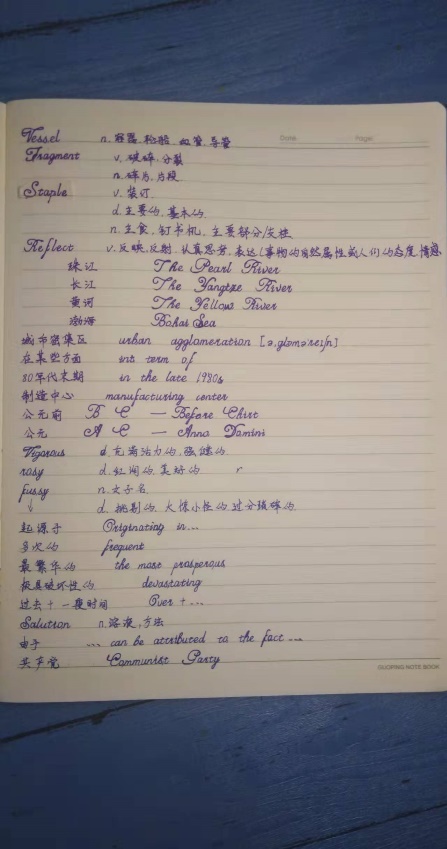 Date. Page:
Vessel n. 容器, 轮船, 血管, 导管
Fragment v. 破碎, 分裂
n. 碎片, 片段
Staple v. 装订
d. 主要的, 基本的
n. 主食, 钉书机, 主要部分/支柱
Reflect v. 反映, 反射, 认真思考, 表达(事物的自然属性或人们的态度, 情感
珠江 The Pearl River
长江 The Yangtze River
黄河 The Yellow River
渤海 Bohai Sea
城市密集区 urban agglomeration [ə,glɒmə'reɪʃn]
在某些方面 int term of
80年代末期 in the late 1980s
制造中心 manufacturing center
公元前 B C — Before Chirt
公元 A C — Anno Domini
Vigorous d. 充满活力的, 强健的
rosy d. 红润的, 美好的 r
fussy n. 女子名
↓ d. 挑剔的, 大惊小怪的, 过分琐碎的
起源于 Originating in...
多次的 frequent
最繁华的 the most prosperous
极具破坏性的 devastating
过去 + 一段时间 Over + ...
Solution n. 溶液, 方法
由于 ... can be attributed to the fact ...
共产党 Communist Party
GUOPING NOTE BOOK